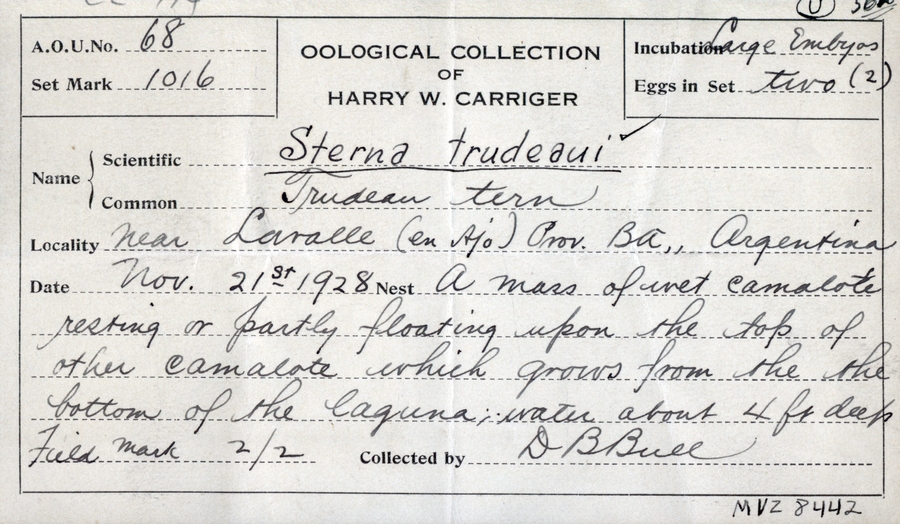 A.O.U.No. 68
Set Mark 1016
OOLOGICAL COLLECTION
OF
HARRY W. CARRIGER
Incubation Large Embyos
Eggs in Set two (2)
Name
Scientific Sterna trudeaui ✓
Common Trudeau tern
Locality near Lavalle (en Ajo) Prov. BA,, Argentina
Date Nov. 21st 1928 Nest A mass of wet camalote
resting or partly floating upon the top of
other camalote which grows from the the
bottom of the laguna; water about 4 ft deep
Field mark 2/2 Collected by D B Bull
MVZ 8442